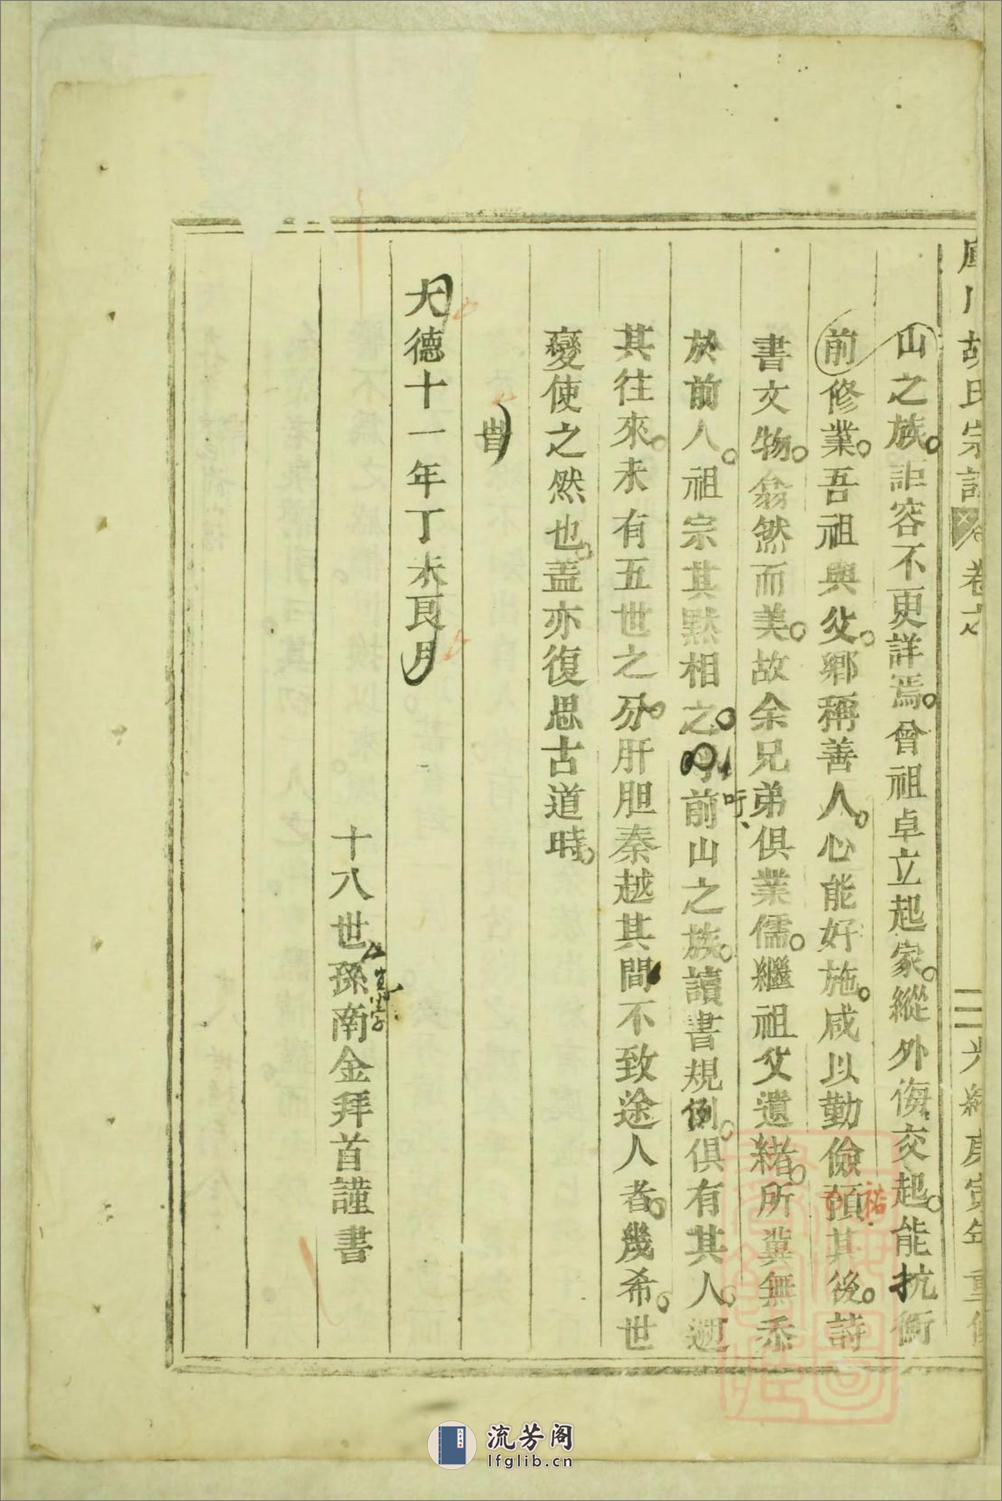 川胡氏宗譜 卷之 二 光緒庚寅年重修
山之族詎容不更詳焉曾祖卓立起家縱外侮交起能抗衡
前修業吾祖與父鄉稱善人心能好施咸以勤儉預其後詩
裕
書文物翕然而美故余兄弟俱業儒繼祖父遺緒所冀無忝
於前人祖宗其默相之前山之族讀書規例俱有其人遡
吁
其往來未有五世之分肝胆秦越其間不致途人者幾希世
變使之然也盖亦復思古道時
旹
大德十一年丁未良月
十八世孫南金拜首謹書
流芳阁
lfglib.cn